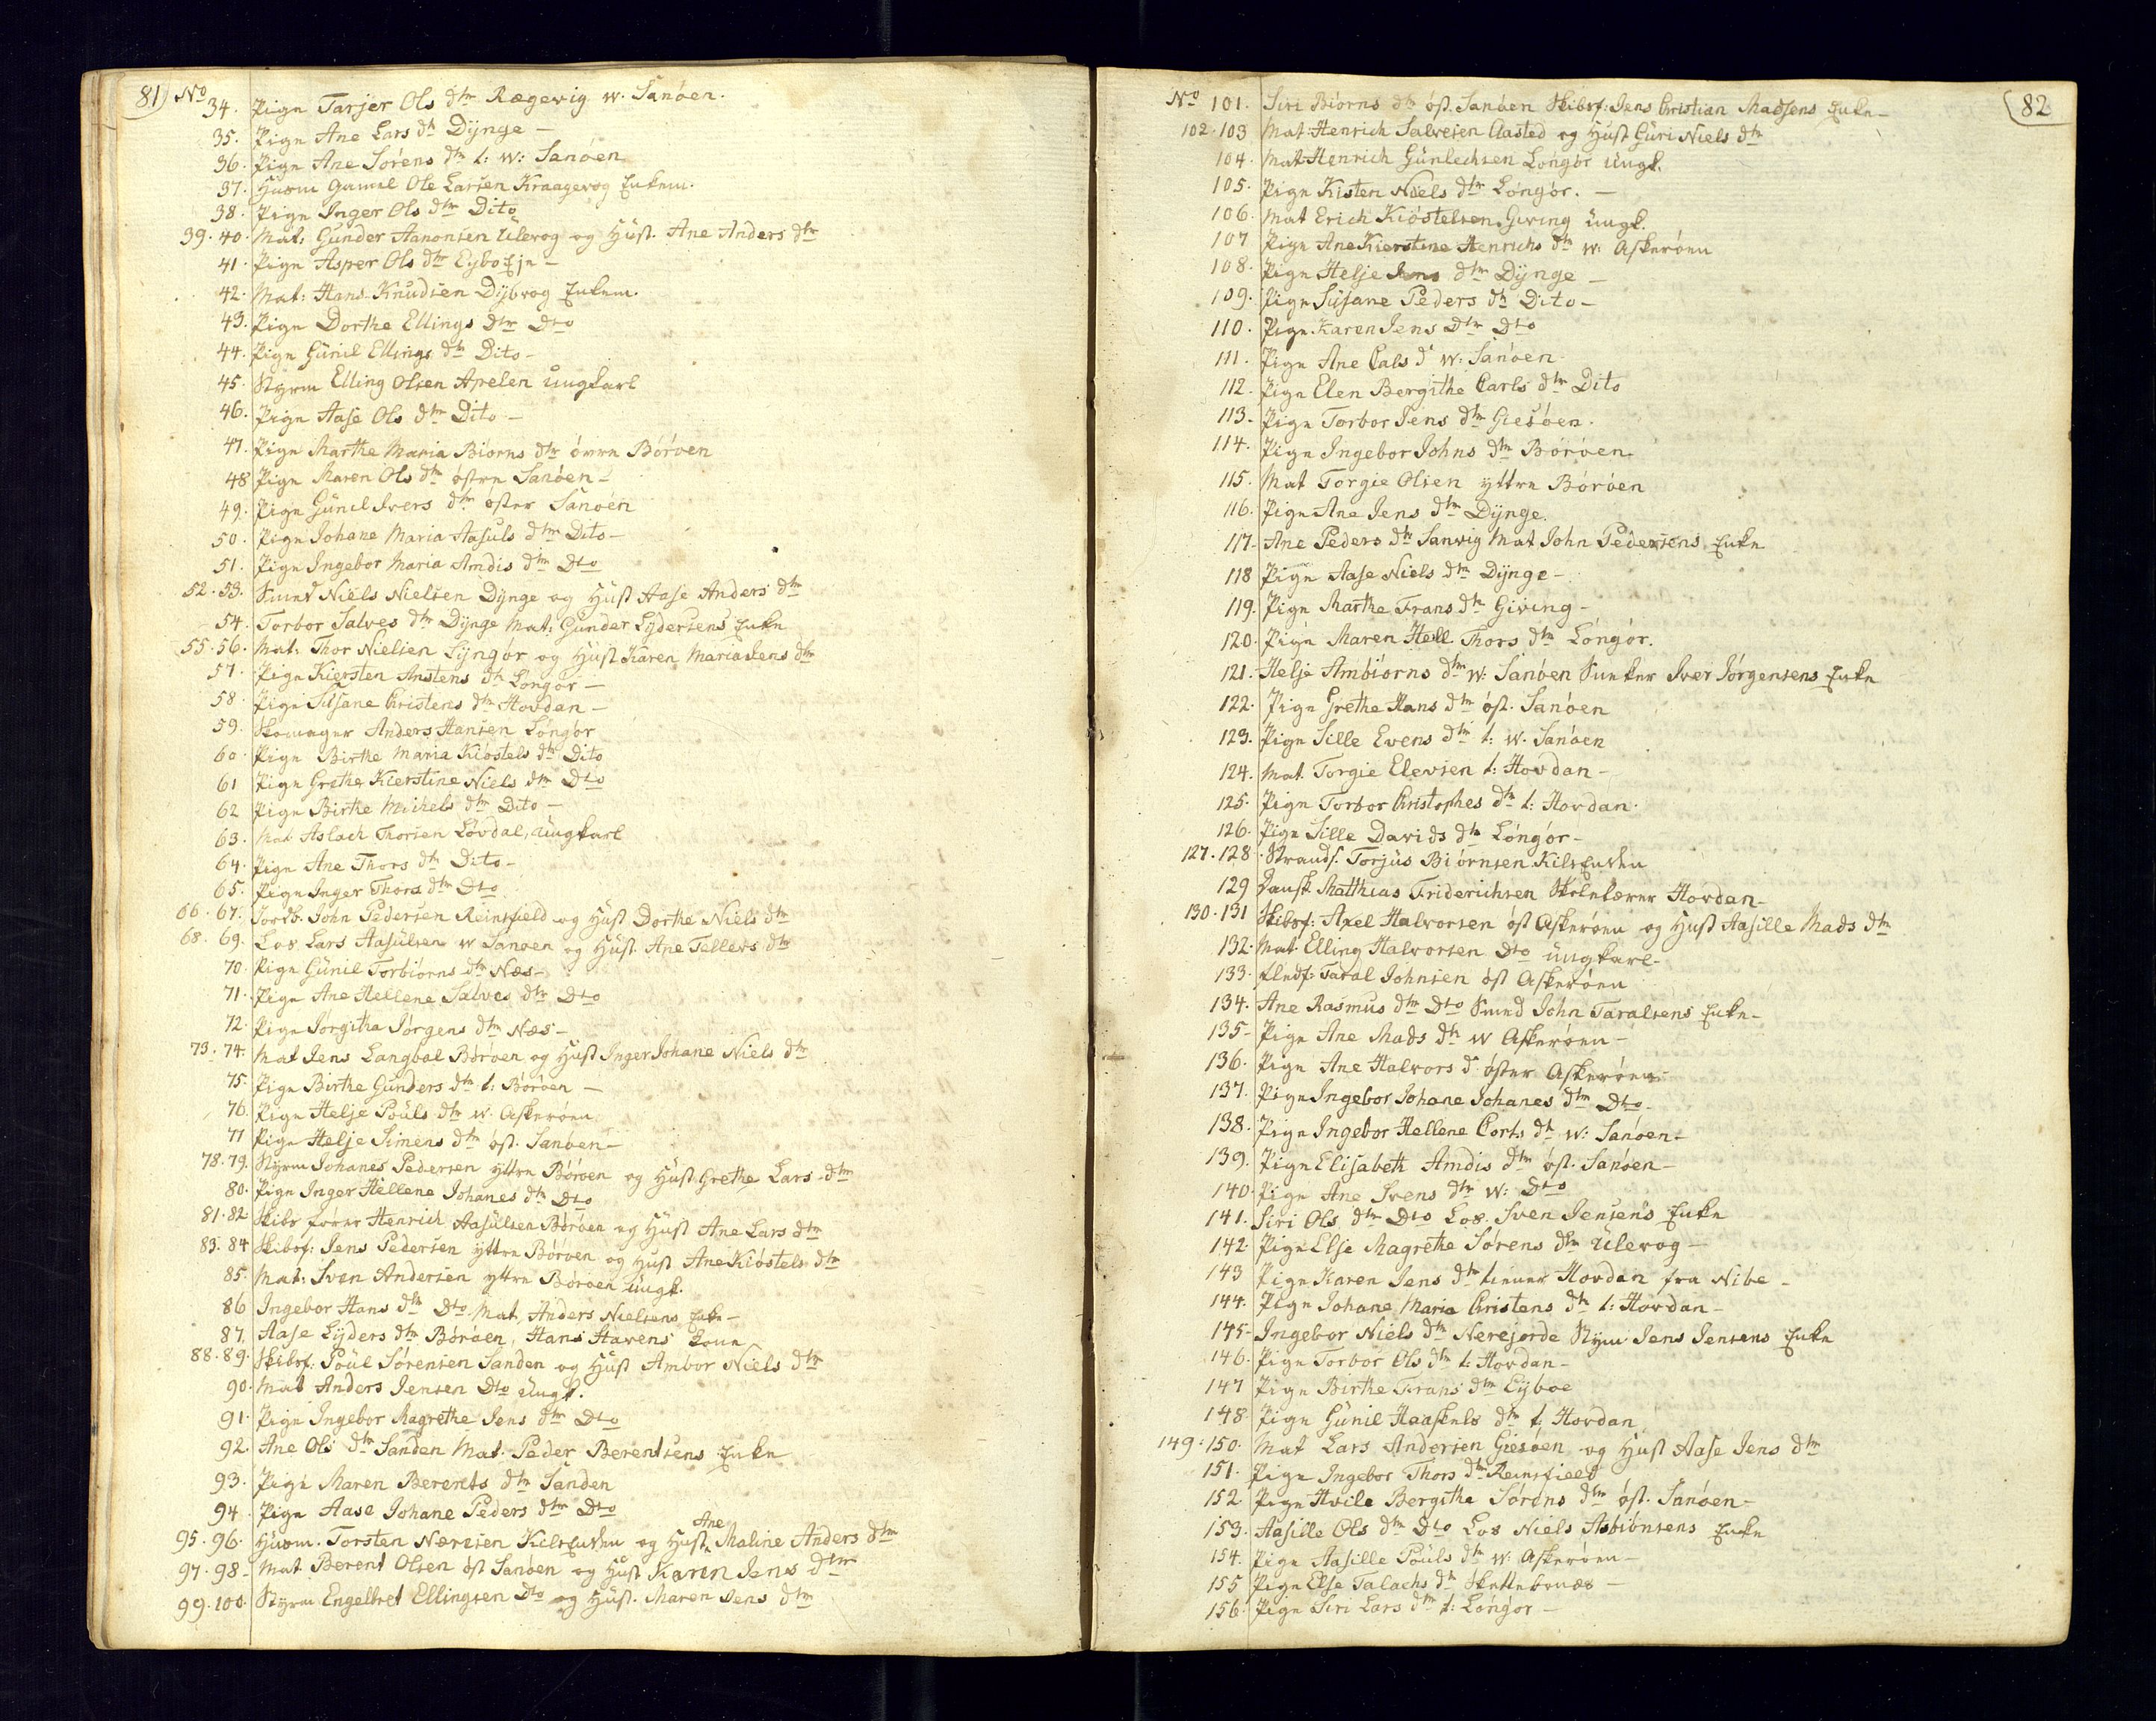 81 No
34. Pige Tarjer Ols dtr Rægevig w. Sanøen.
35. Pige Ane Lars dtr Dÿnge —
36. Pige Ane Sørens dtr t: w: Sanøen
37. Huusm gamel Ole Larsen Kraagevog Enkem.
38. Pige Inger Ols dtr Dito
39. 40. Mat: Gunder Aanonsen Ulevog og Hust. Ane Anders dtr
41. Pige Asper Ols dtr Eÿboeje —
42. Mat: Hans Knudsen Dÿbvog Enkem.
43. Pige Dorthe Ellings dtr Dto
44. Pige Gunil Ellings dtr Dito —
45. Styrm Elling Olsen Apelen ungkarl
46. Pige Aase Ols dtr Dito —
47. Pige Marthe Maria Biørns dtr øvre Børøen
48 Pige Maren Ols dtr østre Sanøen —
49. Pige Gunil Ivers dtr øster Sanøen
50. Pige Johane Maria Aasuls dtr Dito —
51. Pige Ingebor Maria Amdis dtr Dto
52. 53. Smed Niels Nielsen Dÿnge og Hust Aase Anders dtr
54. Torbor Salves dtr Dÿnge Mat: Gunder Lÿdersens Enke
55. 56. Mat: Thor Nielsen Lÿngør og Hust Karen Maria Jens dtr
57. Pige Kiersten Anstens dtr Longør —
58. Pige Susane Christens dtr Hovdan —
59. Skomager Anders Hansen Løngør
60. Pige Birthe Maria Kiøstels dtr Dito
61 Pige Grethe Kierstine Niels dtr Dto
62 Pige Birthe Mikels dtr Dito —
63. Mat Aslach Thorsen Løvdal, ungkarl
64. Pige Ane Thors dtr Dito —
65. Pige Inger Thors dtr Dto
66. 67. Jordb. John Pedersen Reinsfield og Hust Dorthe Niels dtr
68. 69. Los Lars Aasulsen w Sanøen og Hust Ane Tellevs dtr
70. Pige Gunil Torbiørns dtr Næs —
71. Pige Ane Hellene Salves dtr Dto
72. Pige Jørgitha Jørgens dtr Næs —
73. 74. Mat Jens Langbal Børøen og Hust Inger Johane Niels dtr
75. Pige Birthe Gunders dtr t: Børøen —
76. Pige Helje Pouls dtr w. Askerøen
77 Pige Helje Simens dtr øst. Sanøen —
78. 79. Styrm Johanes Pedersen yttre Børøen og Hust Grethe Lars dtr
80. Pige Inger Hellene Johanes dtr Dto
81. 82 Skibsfører Henrich Aasulsen Børøen og Hust Ane Lars dtr
83. 84 Skibsf: Jens Pedersen yttre Børøen og Hust Ane Kiøstels dtr
85. Mat: Sven Andersen yttre Børøen ungk.
86 Ingebor Hans dtr Dto Mat Anders Nielsens Enke —
87. Aase Lÿders dtr Børøen, Hans Havens Kone
88. 89. Skibsf: Poul Sørensen Sanden og Hust Ambor Niels dtr
90. Mat Anders Jensen Dto ungk.
91. Pige Ingebor Magrethe Jens dtr Dto
92. Ane Ols dtr Sanden Mat. Peder Berentsens Enke
93. Pige Maren Berents dtr Sanden
94. Pige Aase Johane Peders dtr Dto
95. 96. Huusm. Torsten Næresen Kilsenden og Hust Ane Maline Anders dtr
97. 98. Mat Berent Olsen øst Sanøen og Hust Karen Jens dtr
99. 100. Styrm Engelbret Ellingsen Dto og Hust. Maren Jens dtr
No 82
101. Siri Biørns dtr øst. Sanøen Skibsf: Jens Christian Madsens Enke —
102. 103 Mat: Henrich Salvesen Aasted og Hust Guri Niels dtr
104. Mat Henrich Gunlechsen Longør ungk.
105. Pige Kisten Niels dtr Longør. —
106. Mat Erich Kiøstelsen Giving ungk.
107 Pige Ane Kierstine Henrichs dtr w: Askerøen
108. Pige Helje Jens dtr Dÿnge —
109. Pige Susane Peders dtr Dito —
110. Pige Karen Jens Dtr Dto
111. Pige Ane Cals d w: Sanøen
112. Pige Elen Bergithe Carls dtr Dito
113. Pige Torbor Jens dtr Giesøen.
114. Pige Ingebor Johns dtr Børøen
115. Mat Torgie Olsen yttre Børøen
116. Pige Ane Jens dtr Dÿnge.
117. Ane Peders dtr Sanvig Mat John Pedersens Enke
118 Pige Aase Niels dtr Dÿnge —
119. Pige Marthe Frans dtr Giving —
120. Pige Maren Hell. Thors dtr Løngør.
121. Helje Ambiørns dtr w: Sanøen Sneker Iver Jørgensens Enke
122. Pige Grethe Hans dtr øst. Sanøen
123. Pige Sille Evens dtr t: w. Sanøen
124. Mat. Torgie Elevsen t: Hovdan —
125. Pige Torbor Christophes dtr t: Hovdan.
126. Pige Sille Davids dtr Løngør —
127. 128. Strands. Torjus Biørnsen Kilsenden
129 Dansk Matthias Friderichsen Skolelærer Hovdan —
130. 131 Skibsf: Axel Halvorsen øst Askerøen og Hust Aasille Mads dtr
132. Mat Elling Halvorsen Dto ungkarl —
133. Taral Johnsen øst Askerøen
134. Ane Rasmus dtr Dto Smed John Taralsens Enke —
135. Pige Ane Mads dtr w Askerøen —
136. Pige Ane Halvors d øster Askerøen
137. Pige Ingebor Johane Johanes dtr Dto —
138. Pige Ingebor Hellene Corts dtr w: Sanøen —
139. Pige Elisabeth Amdis dtr øst. Sanøen —
140. Pige Ane Svens dtr w: Dto
141. Siri Ols dtr Dto Los. Sven Jensens Enke
142. Pige Else Magrethe Sørens dtr Ulevog —
143 Pige Karen Jens dtr tiener Hovdan fra Nibe —
144. Pige Johane Maria Christens dtr t: Hovdan —
145. Ingebor Niels dtr Nerejorde Stÿrm Jens Jensens Enke
146. Pige Torbor Ols dtr t: Hovdan —
147 Pige Birthe Frans dtr Eÿboe
148. Pige Gunil Haaskels dtr t: Hovdan
149. 150. Mat Lars Andersen Giesøen og Hust Aase Jens dtr
151. Pige Ingebor Thors dtr Reinsfield
152. Pige Hvile Bergithe Sørens dtr øst. Sanøen —
153. Aasille Ols dtr Dto Los Niels Asbiønsens Enke
154. Pige Aasille Pouls dtr w. Askerøen —
155 Pige Else Talachs dtr Skettebonæs —
156. Pige Siri Lars dtr t: Longør —